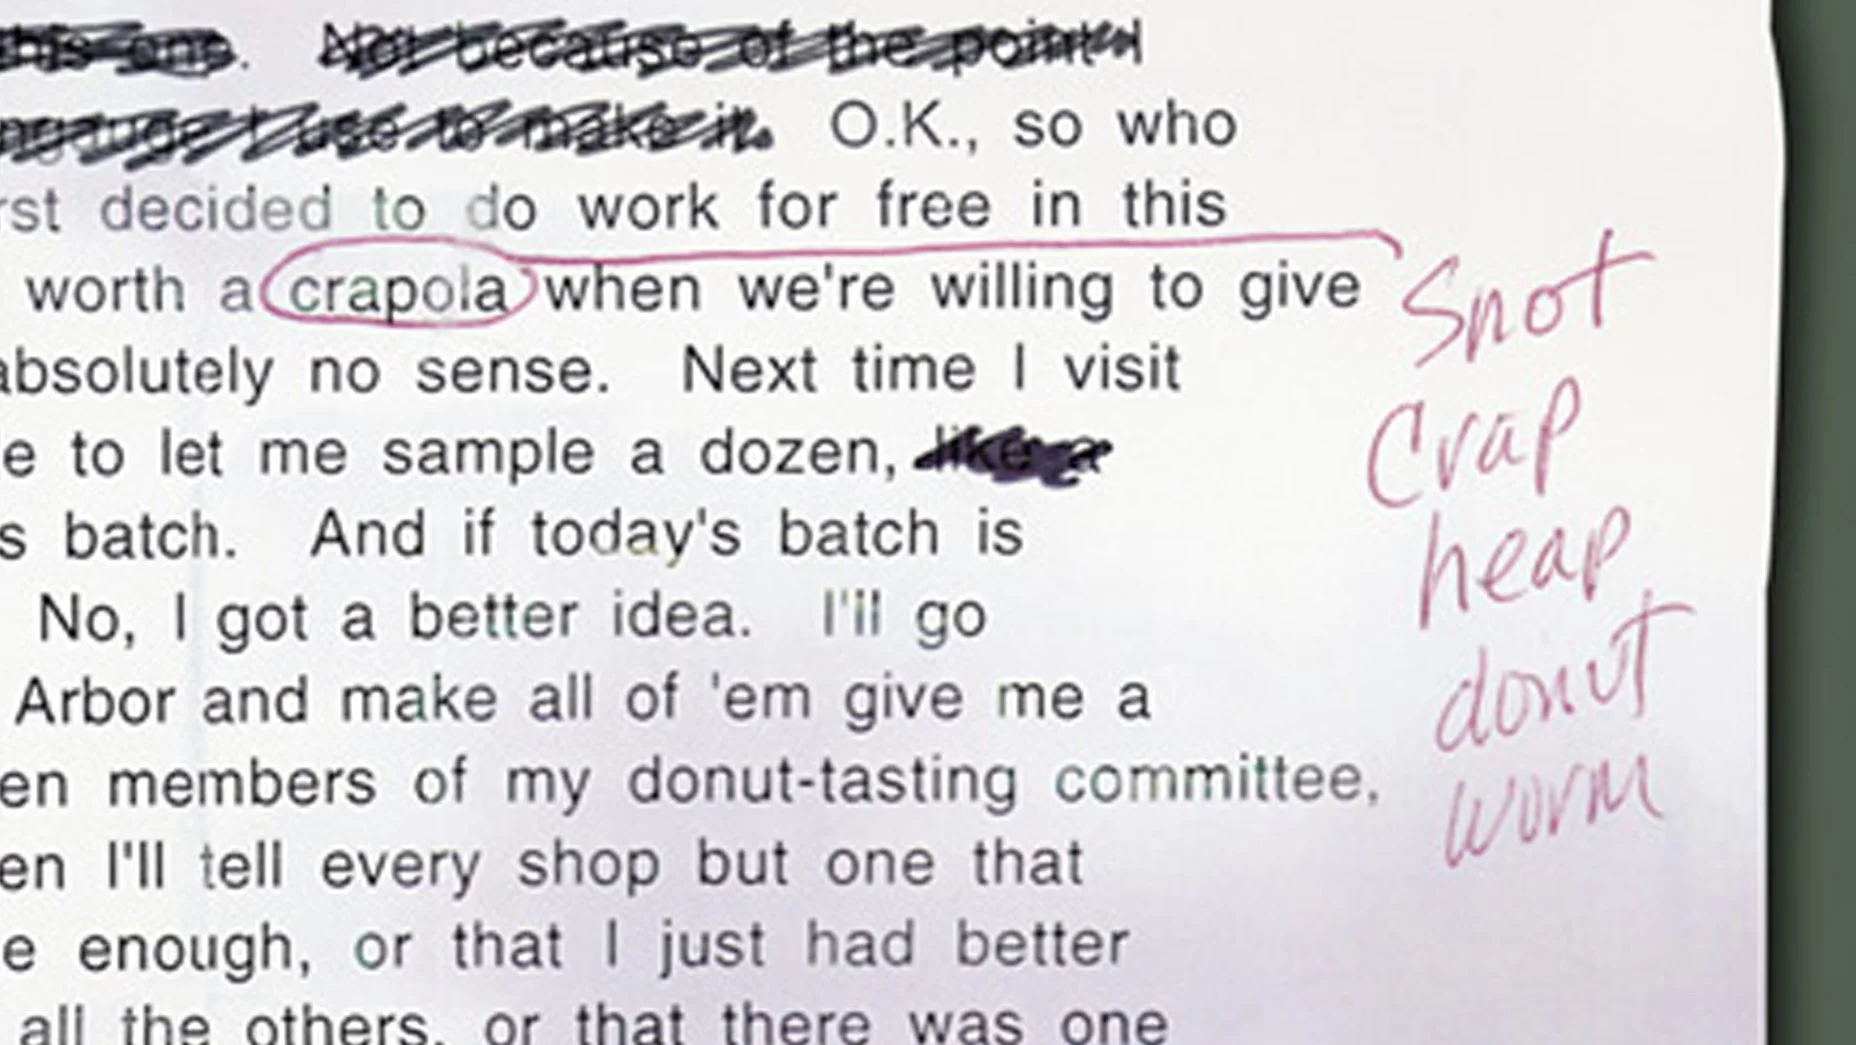 this one. Not because of the point I
I use to make it. O.K., so who
rst decided to do work for free in this
worth a crapola when we're willing to give
absolutely no sense. Next time I visit
e to let me sample a dozen, like a
s batch. And if today's batch is
No, I got a better idea. I'll go
Arbor and make all of 'em give me a
en members of my donut-tasting committee,
en I'll tell every shop but one that
e enough, or that I just had better
all the others, or that there was one
Snot
Crap
heap
donut
worm